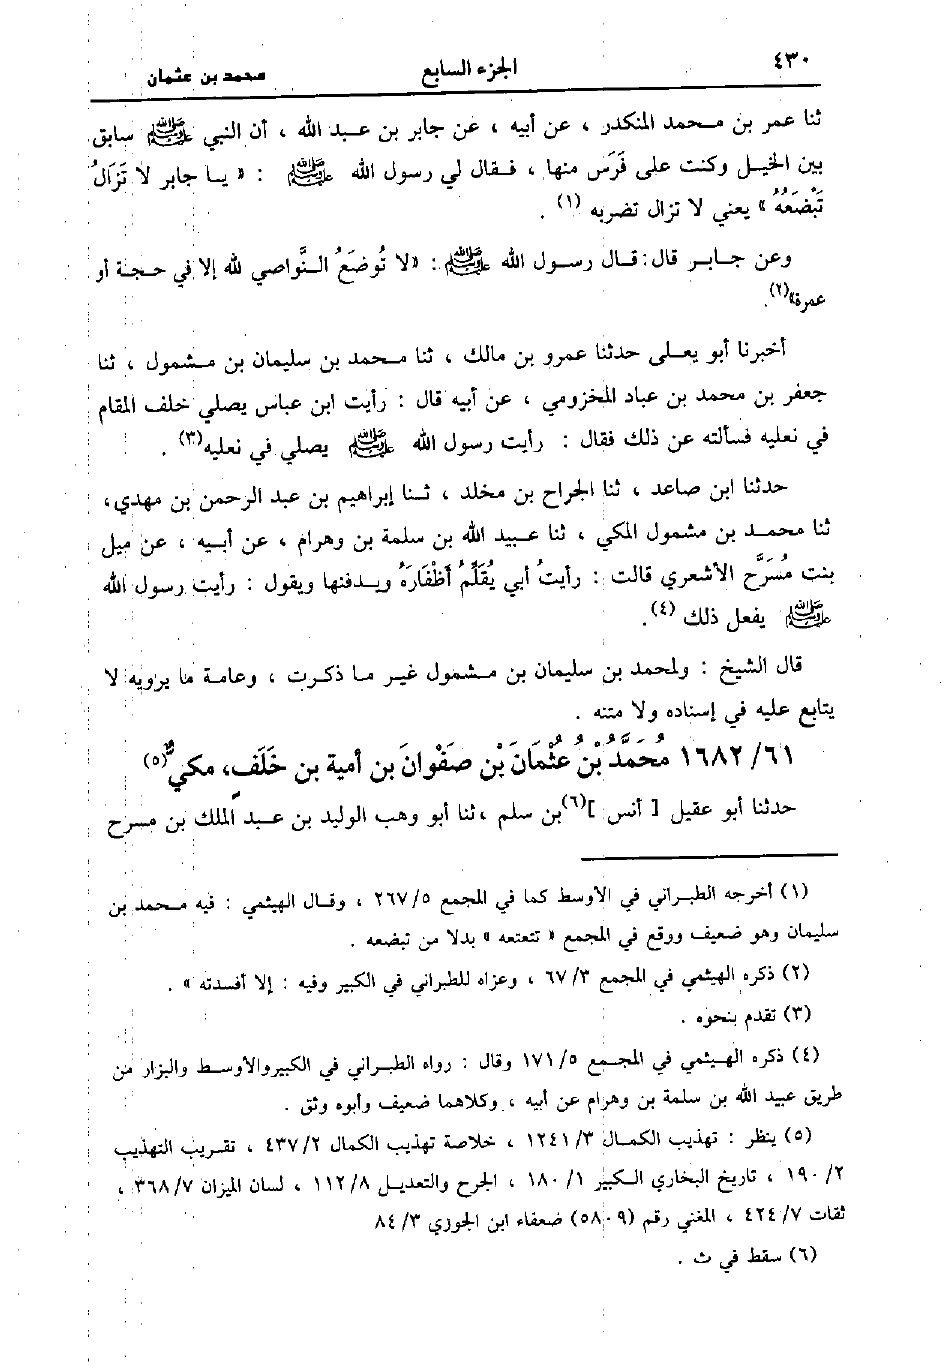 ٤٣٠ الجزء السابع محمد بن عثمان
ثنا عمر بن محمد المنكدر ، عن أبيه ، عن جابر بن عبد الله ، أن النبي ﷺ سابق
بين الخيل وكنت على فَرَس منها ، فقال لي رسول الله ﷺ : « يا جابر لا تَزَالُ
تَبْضَعُهُ » يعني لا تزال تضربه (١) .
وعن جابر قال : قال رسول الله ﷺ : «لا تُوضَعُ النَّواصي لله إلا في حجة أو
عمرة»(٢).
أخبرنا أبو يعلى حدثنا عمرو بن مالك ، ثنا محمد بن سليمان بن مشمول ، ثنا
جعفر بن محمد بن عباد المخزومي ، عن أبيه قال : رأيت ابن عباس يصلي خلف المقام
في نعليه فسألته عن ذلك فقال : رأيت رسول الله ﷺ يصلي في نعليه(٣) .
حدثنا ابن صاعد ، ثنا الجراح بن مخلد ، ثنا إبراهيم بن عبد الرحمن بن مهدي،
ثنا محمد بن مشمول المكي ، ثنا عبيد الله بن سلمة بن وهرام ، عن أبيه ، عن ميل
بنت مُسَرَّح الأشعري قالت : رأيتُ أبي يُقَلِّمُ أظْفَارَهُ ويدفنها ويقول : رأيت رسول الله
ﷺ يفعل ذلك (٤).
قال الشيخ : ولمحمد بن سليمان بن مشمول غير ما ذكرت ، وعامة ما يرويه لا
يتابع عليه في إسناده ولا متنه .
٦١/ ١٦٨٢ مُحَمَّدُ بْنُ عُثْمَانَ بْنِ صَفْوَانَ بن أمية بن خَلَفٍ، مكيٌّ(٥)
حدثنا أبو عقيل [ أنس ](٦) بن سلم ، ثنا أبو وهب الوليد بن عبد الملك بن مسرح
(١) أخرجه الطبراني في الأوسط كما في المجمع ٥/ ٢٦٧ ، وقال الهيثمي : فيه محمد بن
سليمان وهو ضعيف ووقع في المجمع « تتعتعه » بدلا من تبضعه .
(٢) ذكره الهيثمي في المجمع ٣/ ٦٧ ، وعزاه للطبراني في الكبير وفيه : إلا أفسدته » .
(٣) تقدم بنحوه .
(٤) ذكره الهيثمي في المجمع ٥/ ١٧١ وقال : رواه الطبراني في الكبير والأوسط والبزار من
طريق عبيد الله بن سلمة بن وهرام عن أبيه ، وكلاهما ضعيف وأبوه وثق .
(٥) ينظر : تهذيب الكمال ٣/ ١٢٤١ ، خلاصة تهذيب الكمال ٢/ ٤٣٧ ، تقريب التهذيب
٢/ ١٩٠ ، تاريخ البخاري الكبير ١/ ١٨٠ ، الجرح والتعديل ٨/ ١١٢ ، لسان الميزان ٧/ ٣٦٨ ،
ثقات ٧/ ٤٢٤ ، المغني رقم (٥٨٠٩) ضعفاء ابن الجوزي ٣/ ٨٤
(٦) سقط في ث .